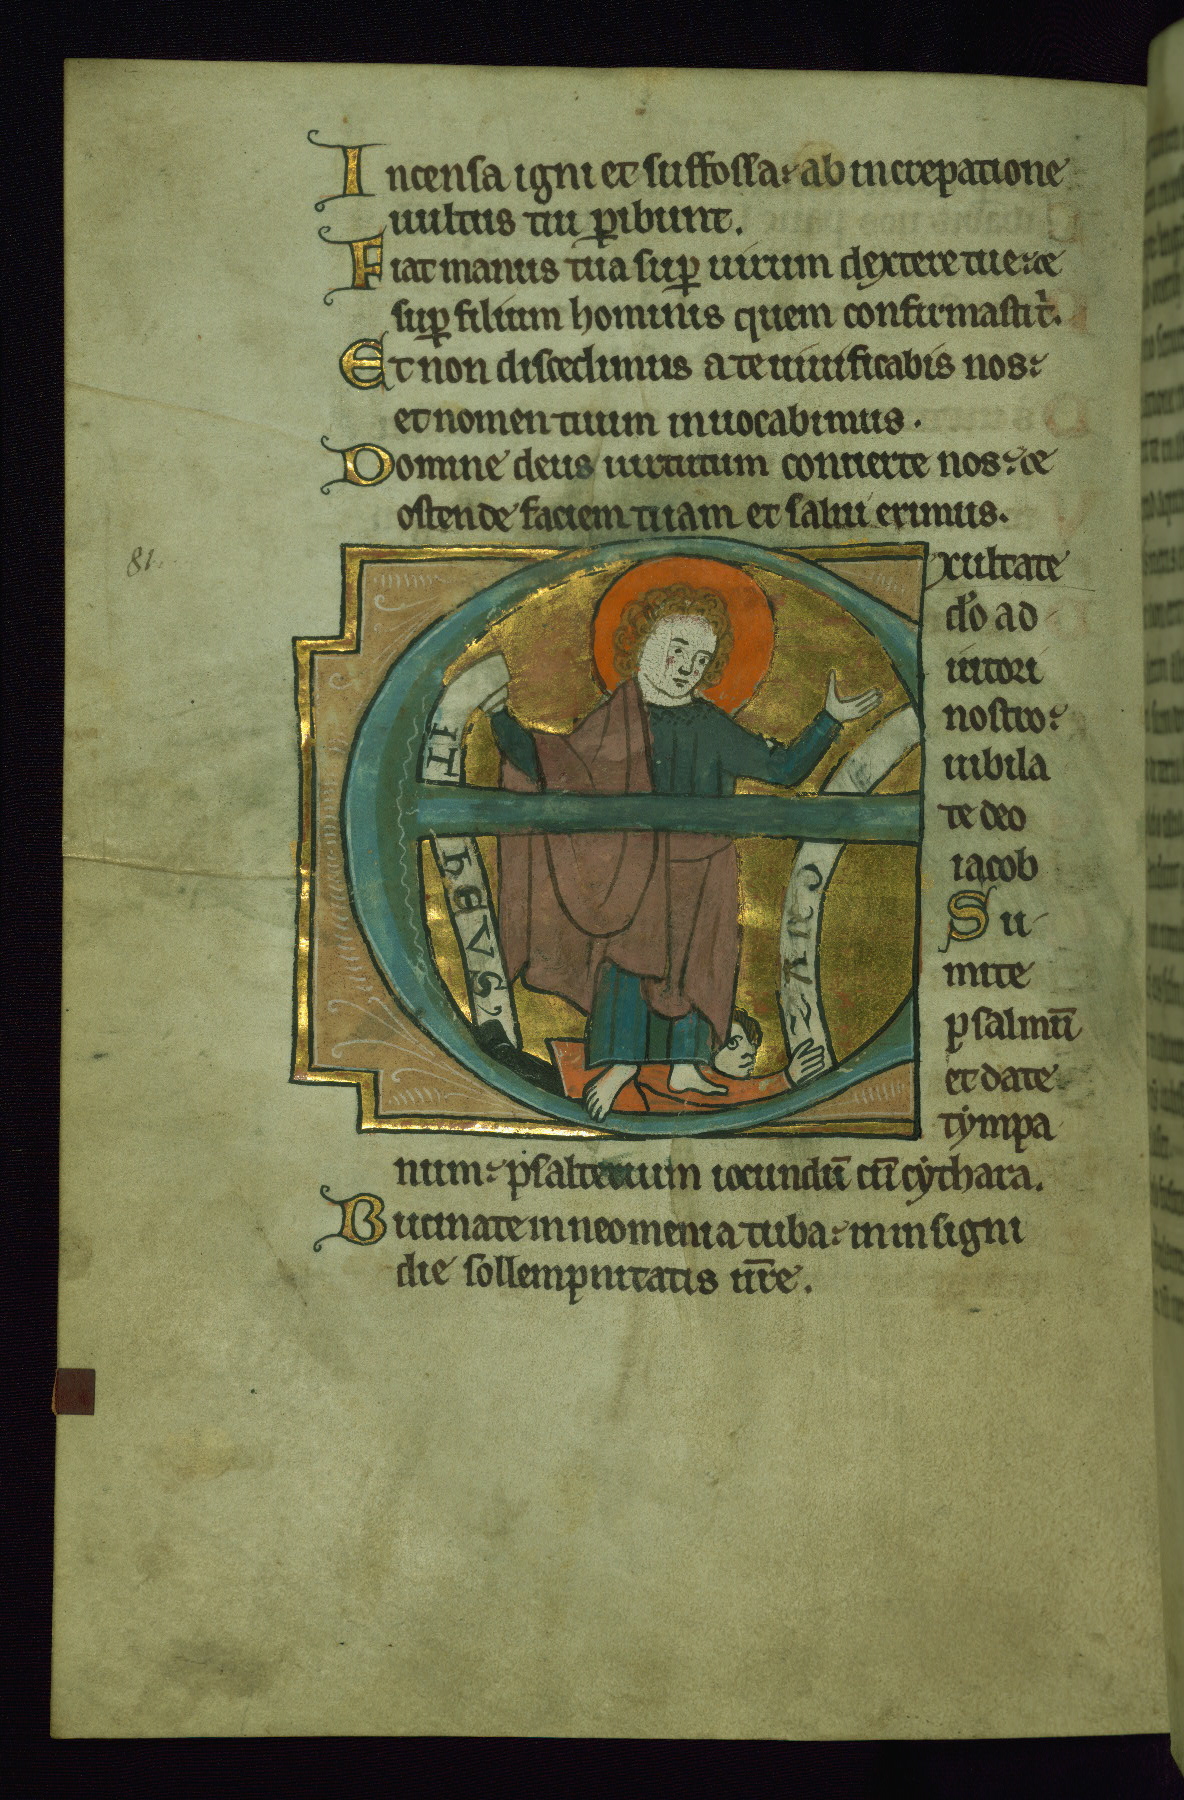 Incensa igni et suffossa: ab increpatione
uultus tui p̱ibunt.
Fiat manus tua sup̱ uirum dextere tue: &
sup̱ filium hominis quem confirmasti t̉.
Et non discedimus a te uiuificabis nos:
et nomen tuum inuocabimus.
Domine deus uirtutum conuerte nos: &
ostende faciem tuam et salui erimus.
81.
Exultate
do ad
iutori
nostro:
iubila
te deo
iacob
Su
mite
psalmū
et date
tympa
num: psalterium iocundū cū cythara.
Bucinate in neomenia tuba: in insigni
die sollempnitatis nr̄e.